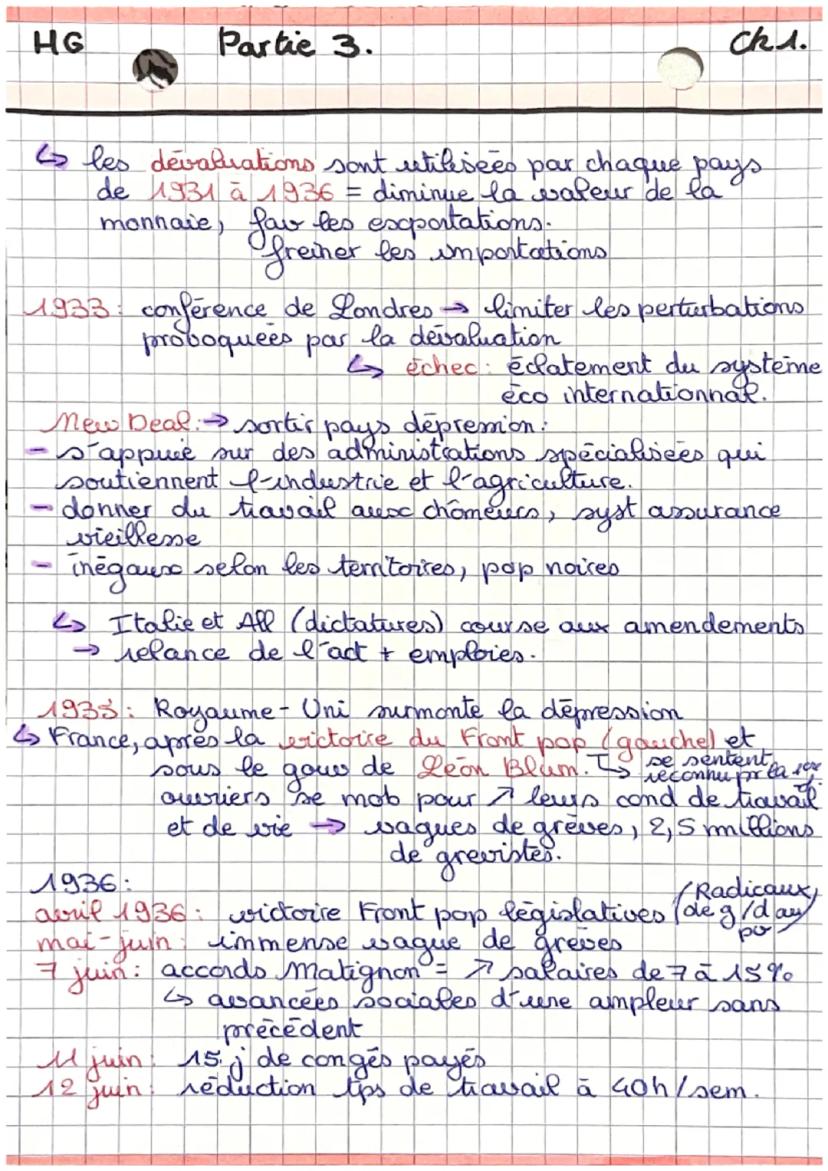 HG Partie 3. Ch 1.
↳ les dévaluations sont utilisées par chaque pays
de 1931 à 1936 = diminue la valeur de la
monnaie, fav les exportations.
freiner les importations
1933 : conférence de Londres → limiter les perturbations
proboquées par la dévaluation
↳ échec : éclatement du système
éco internationnal.
New Deal : → sortir pays dépression :
- s'appuie sur des administrations spécialisées qui
soutiennent l'industrie et l'agriculture.
- donner du travail aux chômeurs, syst assurance
vieillesse
- inégaux selon les territoires, pop noires
↳ Italie et All (dictatures) course aux amendements
→ relance de l'act + emploies.
1935 : Royaume-Uni surmonte la dépression
↳ France, après la victoire du Front pop (gauche) et
sous le gouv de Léon Blum. ↳ se sentent
reconnu pr la 1ère
ouvriers se mob pour ↗ leurs cond de travail
et de vie → vagues de grèves, 2,5 millions
de grevistes.
1936 :
avril 1936 : victoire Front pop législatives (Radicaux,
de g/d au
pv)
mai-juin : immense vague de grèves
7 juin : accords Matignon = ↗ salaires de 7 à 15%
↳ avancées sociales d'une ampleur sans
précédent
11 juin : 15 j de congés payés
12 juin : réduction tps de travail à 40h/sem.